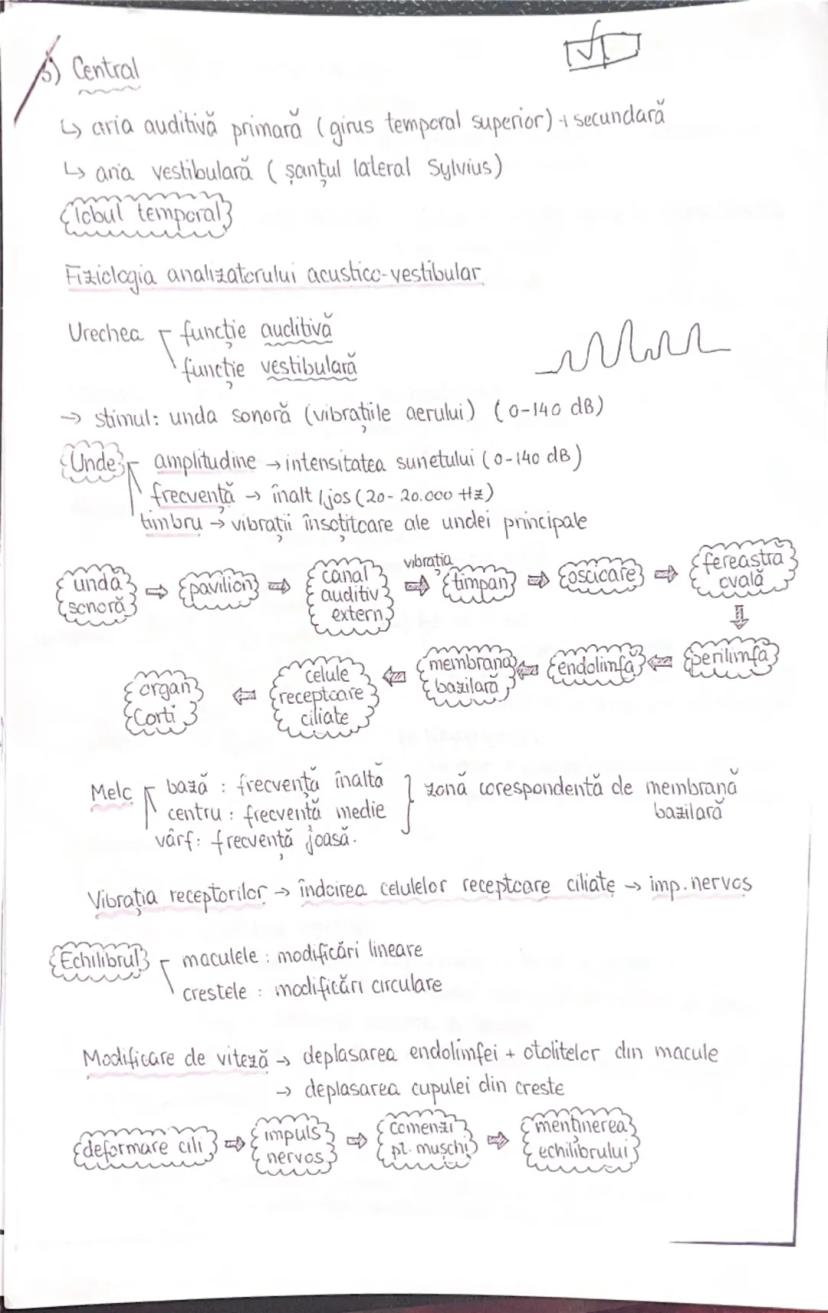 3) Central
↳ aria auditivă primară (girus temporal superior) + secundară
↳ aria vestibulară (șanțul lateral Sylvius)
lobul temporal
Fiziologia analizatorului acustico-vestibular
Urechea
funcție auditivă
funcție vestibulară
→ stimul: unda sonoră (vibrațiile aerului) (0-140 dB)
Unde
amplitudine → intensitatea sunetului (0-140 dB)
frecvență → înalt / jos (20-20.000 Hz)
timbru → vibrații însoțitoare ale undei principale
undă sonoră ⇒ pavilion ⇒ canal auditiv extern ⇒ vibrația timpan ⇒ oscioare ⇒ fereastra ovală
⇓
organ Corti ⇐ celule receptoare ciliate ⇐ membrana bazilară ⇐ endolimfă ⇐ perilimfă
Melc
bază : frecvență înaltă
centru : frecvență medie
vârf: frecvență joasă.
} zonă corespondentă de membrană
bazilară
Vibrația receptorilor → îndoirea celulelor receptoare ciliate → imp. nervos
Echilibrul
maculele : modificări lineare
crestele : modificări circulare
Modificare de viteză → deplasarea endolimfei + otolitelor din macule
→ deplasarea cupulei din creste
deformare cili ⇒ impuls nervos ⇒ comenzi pt. mușchi ⇒ menținerea echilibrului